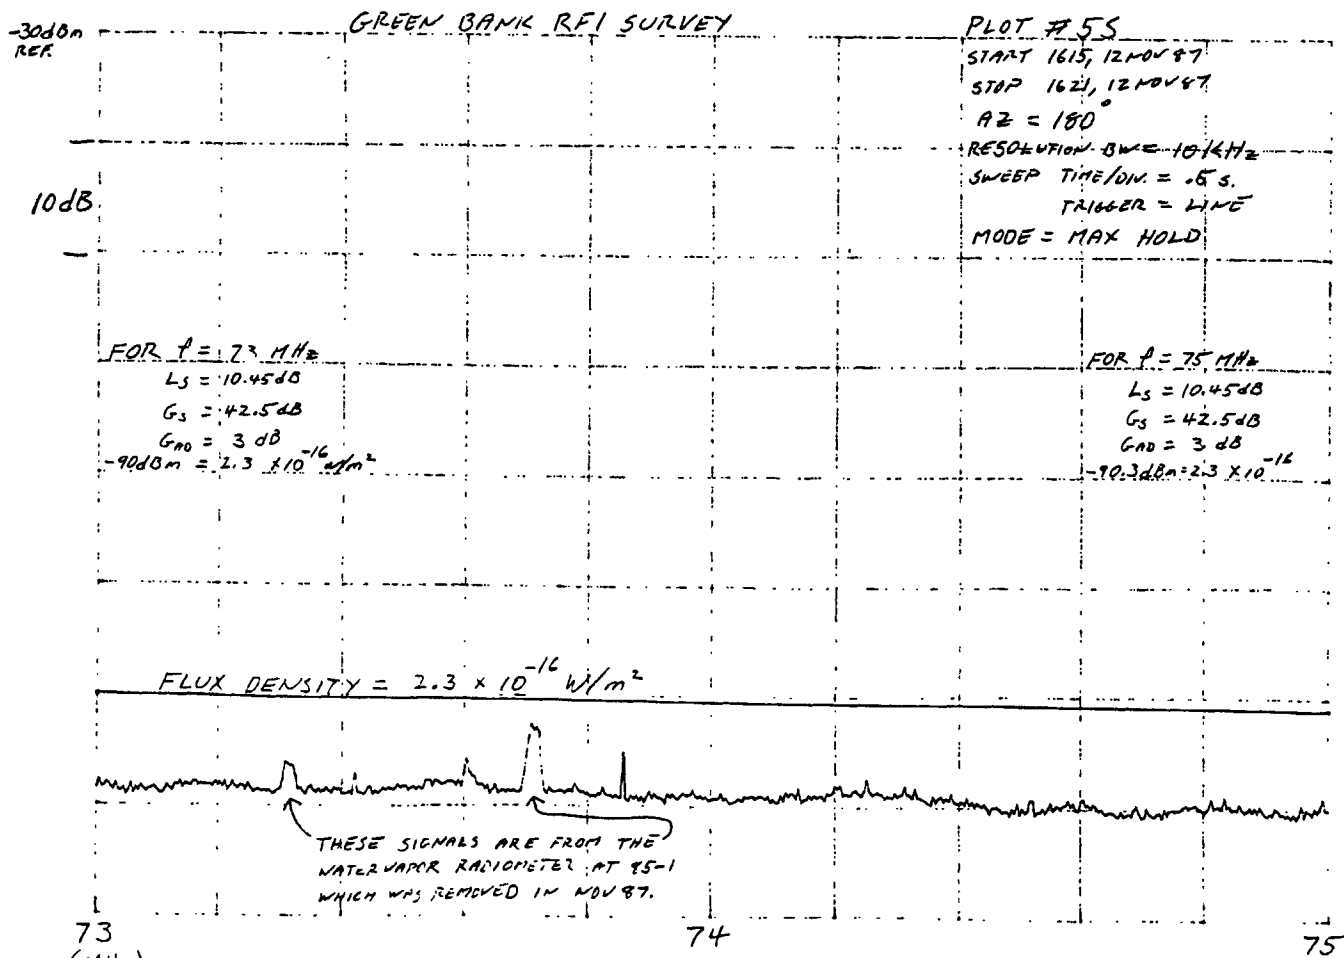 GREEN BANK RFI SURVEY
-30dBm
REF.
PLOT # 5S
START 1615, 12 NOV 87
STOP 1621, 12 NOV 87
AZ = 180°
RESOLUTION BW = 10 KHz
SWEEP TIME/DIV. = .5 s.
TRIGGER = LINE
MODE = MAX HOLD
10dB
FOR f = 73 MHz
LS = 10.45dB
GS = 42.5dB
= 3 dB
-90dBm = 2.3 x10^-16 w/m²
FOR f = 75 MHz
LS = 10.45dB
GS = 42.5dB
= 3 dB
-90.3dBm=2.3 x10^-16
FLUX DENSITY = 2.3 x 10^-16 W/m²
THESE SIGNALS ARE FROM THE
WATER VAPOR RADIOMETER AT 85-1
WHICH WAS REMOVED IN NOV 87.
73
74
75